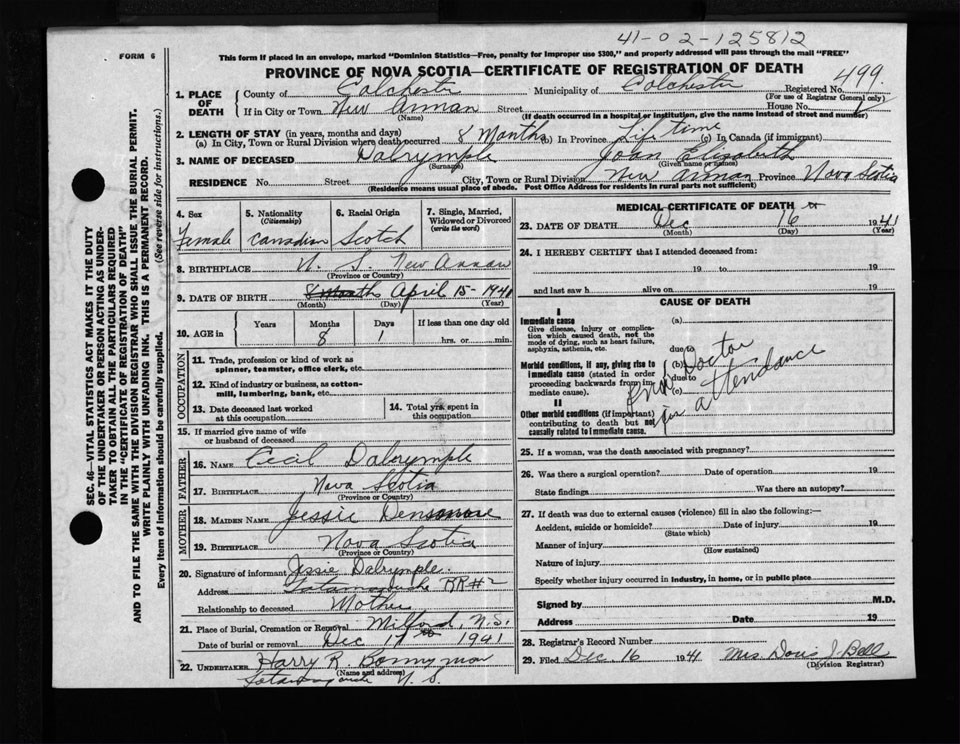 41-02-125812
FORM 6
This form if placed in an envelope, marked "Dominion Statistics—Free, penalty for improper use $300," and properly addressed will pass through the mail "FREE"
PROVINCE OF NOVA SCOTIA—CERTIFICATE OF REGISTRATION OF DEATH
SEC. 46—VITAL STATISTICS ACT MAKES IT THE DUTY
OF THE UNDERTAKER OR PERSON ACTING AS UNDER-
TAKER TO OBTAIN ALL THE PARTICULARS REQUIRED
IN THE "CERTIFICATE OF REGISTRATION OF DEATH"
AND TO FILE THE SAME WITH THE DIVISION REGISTRAR WHO SHALL ISSUE THE BURIAL PERMIT.
WRITE PLAINLY WITH UNFADING INK. THIS IS A PERMANENT RECORD.
Every item of information should be carefully supplied. (See reverse side for instructions.)
1. PLACE OF DEATH County of Colchester Municipality of Colchester Registered No. 499
(For use of Registrar General only)
If in City or Town New Annan Street House No.
(Name) (If death occurred in a hospital or institution, give the name instead of street and number)
2. LENGTH OF STAY (in years, months and days)
(a) In City, Town or Rural Division where death occurred 8 Months (b) In Province Life time (c) In Canada (if immigrant)
3. NAME OF DECEASED Dalrymple Joan Elizabeth
(Surname) (Given name or names)
RESIDENCE No. Street City, Town or Rural Division New Annan Province Nova Scotia
(Residence means usual place of abode. Post Office Address for residents in rural parts not sufficient)
4. Sex 5. Nationality (Citizenship) 6. Racial Origin 7. Single, Married, Widowed or Divorced (write the word)
Female Canadian Scotch
8. BIRTHPLACE N. S. New Annan
(Province or Country)
9. DATE OF BIRTH 8 Months April 15 - 1941
(Month) (Day) (Year)
10. AGE in Years Months Days If less than one day old
8 1 hrs. or min.
OCCUPATION
11. Trade, profession or kind of work as
spinner, teamster, office clerk, etc.
12. Kind of industry or business, as cotton-
mill, lumbering, bank, etc.
13. Date deceased last worked
at this occupation
14. Total yrs. spent in
this occupation
15. If married give name of wife
or husband of deceased
FATHER
16. NAME Cecil Dalrymple
17. BIRTHPLACE Nova Scotia
(Province or Country)
MOTHER
18. MAIDEN NAME Jessie
19. BIRTHPLACE Nova Scotia
(Province or Country)
20. Signature of informant Jessie Dalrymple.
Address Tatamagouche RR#2
Relationship to deceased Mother
21. Place of Burial, Cremation or Removal Milford, N.S.
Date of burial or removal Dec 1941
22. UNDERTAKER Harry R. Bonnyman
(Name and address)
Tatamagouche N. S.
MEDICAL CERTIFICATE OF DEATH
23. DATE OF DEATH Dec 16 1941
(Month) (Day) (Year)
24. I HEREBY CERTIFY that I attended deceased from:
19 to 19
and last saw h alive on 19
CAUSE OF DEATH
I
Immediate cause (a)
Give disease, injury or complica-
tion which caused death, not the
mode of dying, such as heart failure,
asphyxia, asthenia, etc. due to
Morbid conditions, if any, giving rise to
immediate cause (stated in order
proceeding backwards from im-
mediate cause). (b)
due to
(c)
II
Other morbid conditions (if important)
contributing to death but not
causally related to immediate cause.
Doctor
for attendance
25. If a woman, was the death associated with pregnancy?
26. Was there a surgical operation? Date of operation 19
State findings Was there an autopsy?
27. If death was due to external causes (violence) fill in also the following:—
Accident, suicide or homicide? Date of injury 19
(State which)
Manner of injury
(How sustained)
Nature of injury
Specify whether injury occurred in industry, in home, or in public place
Signed by M.D.
Address Date 19
28. Registrar's Record Number
29. Filed Dec. 16 1941 Mrs. Doris J. Bell
(Division Registrar)